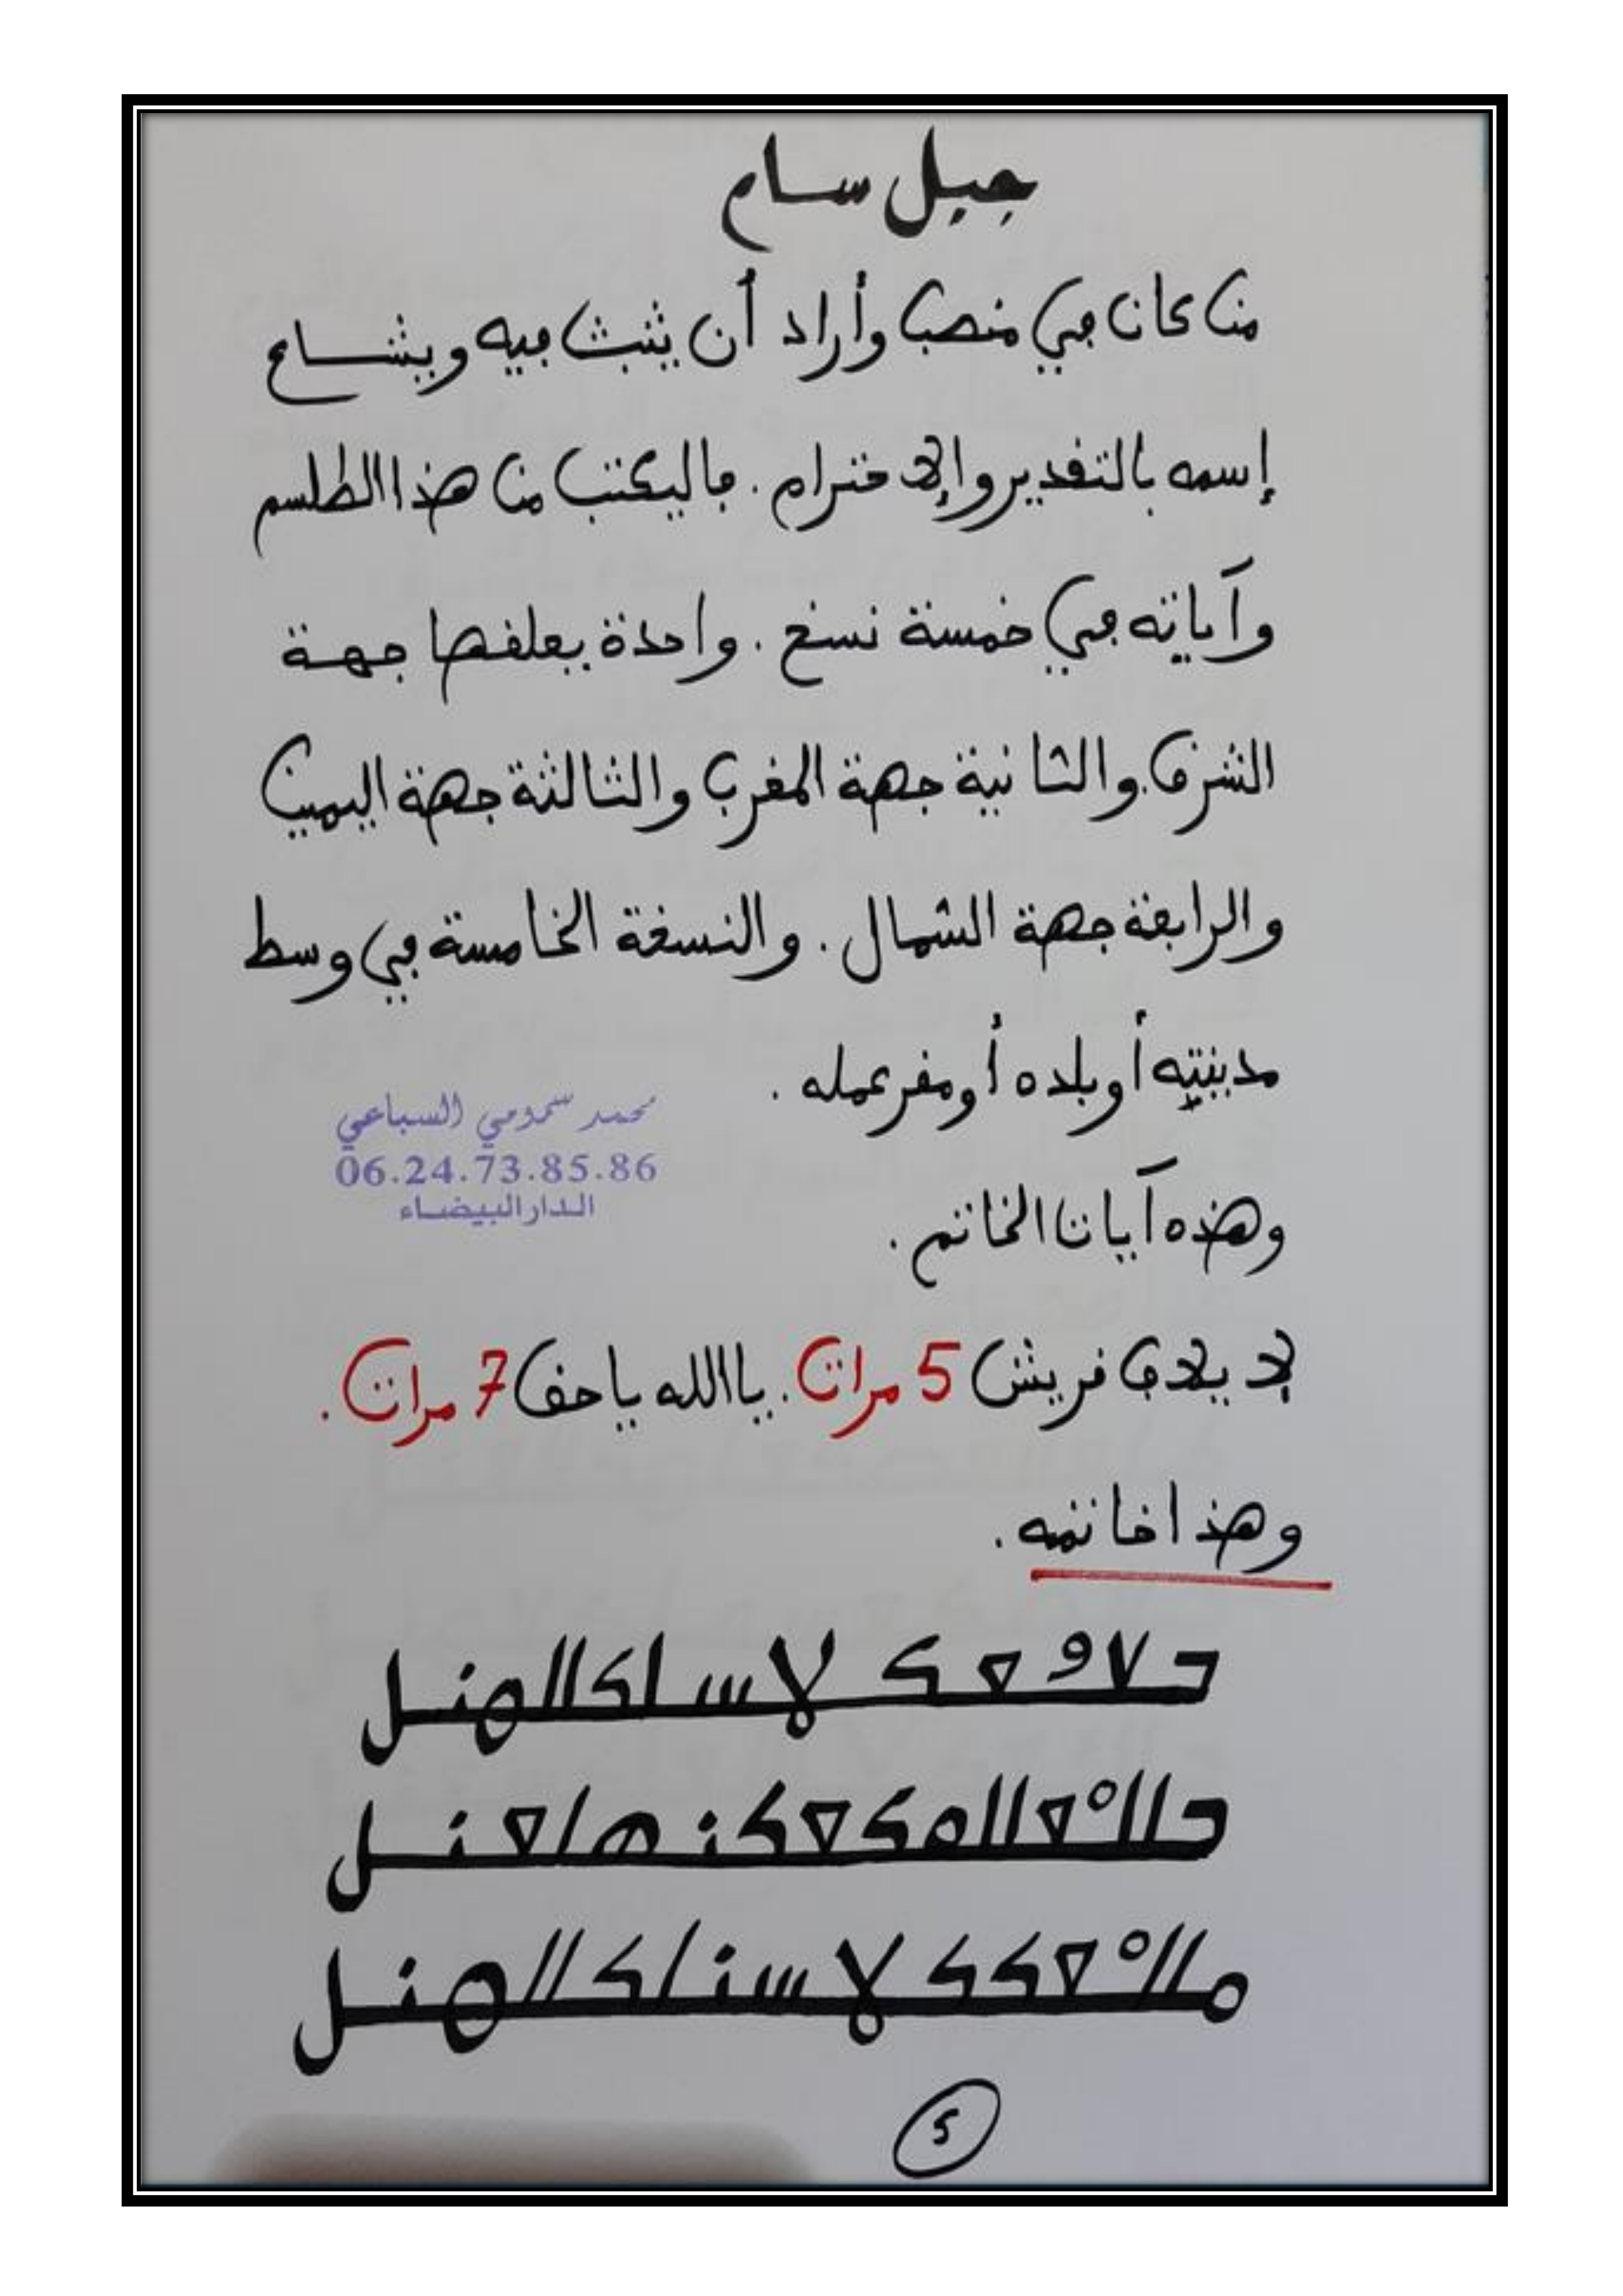 جبل سام
من كان في منصب وأراد أن يثبت فيه ويشاع
إسمه بالتقدير والإحترام . فاليكتب من هذا الطلسم
وآياته في خمسة نسخ . واحدة يعلقها جهة
الشرق . والثانية جهة المغرب والثالثة جهة اليمين
والرابعة جهة الشمال . والنسخة الخامسة في وسط
مدينته أو بلده أو مقر عمله .
محمد سمومي السباعي
06.24.73.85.86
الدار البيضاء
وهذه آيات الخاتم .
لإيلاف قريش 5 مرات . يا الله يا حق 7 مرات .
وهذا خاتمه .
5